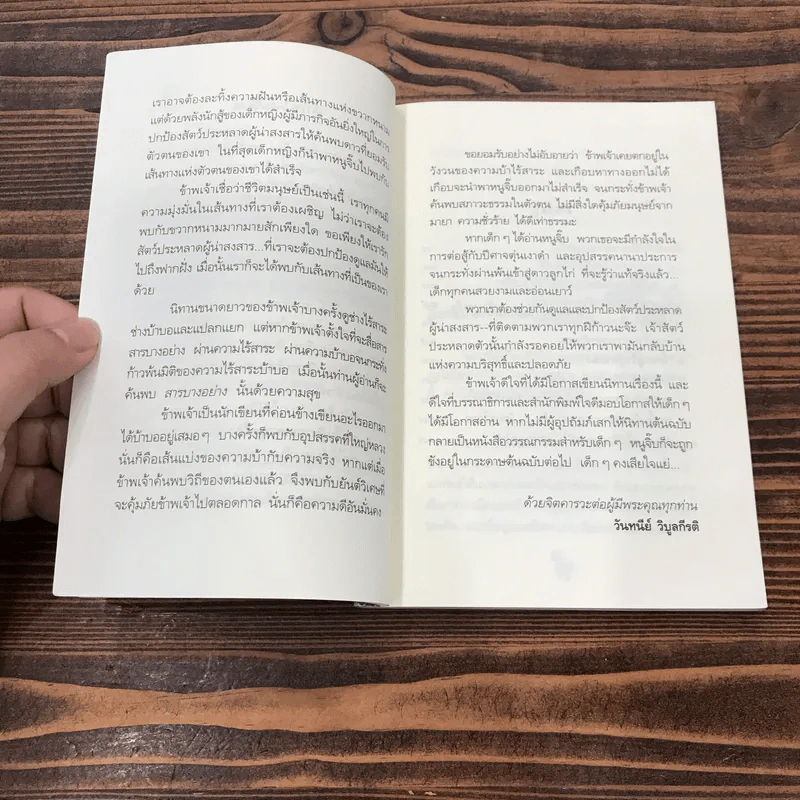 เราอาจต้องละทิ้งความฝันหรือเส้นทางแห่งขวากหนาม
แต่ด้วยพลังนักสู้ของเด็กหญิงผู้มีภารกิจอันยิ่งใหญ่ในการ
ปกป้องสัตว์ประหลาดผู้น่าสงสารให้ค้นพบดาวที่ยอมรับ
ตัวตนของเขา ในที่สุดเด็กหญิงก็นำพาหนูจิ๊บไปพบกับ
เส้นทางแห่งตัวตนของเขาได้สำเร็จ
ข้าพเจ้าเชื่อว่าชีวิตมนุษย์เป็นเช่นนี้ เราทุกคนมี
ความมุ่งมั่นในเส้นทางที่เราต้องเผชิญ ไม่ว่าเราจะต้อง
พบกับขวากหนามมากมายสักเพียงใด ขอเพียงให้เรารัก
สัตว์ประหลาดผู้น่าสงสาร...ที่เราจะต้องปกป้องดูแลมันให้
ไปถึงฟากฝั่ง เมื่อนั้นเราก็จะได้พบกับเส้นทางที่เป็นของเรา
ด้วย
นิทานขนาดยาวของข้าพเจ้าบางครั้งดูช่างไร้สาระ
ช่างบ้าบอและแปลกแยก แต่หากข้าพเจ้าตั้งใจที่จะสื่อสาร
สารบางอย่าง ผ่านความไร้สาระ ผ่านความบ้าบอจนกระทั่ง
ก้าวพ้นมิติของความไร้สาระบ้าบอ เมื่อนั้นท่านผู้อ่านก็จะ
ค้นพบ สารบางอย่าง นั้นด้วยความสุข
ข้าพเจ้าเป็นนักเขียนที่ค่อนข้างเขียนอะไรออกมา
ได้บ้าบออยู่เสมอๆ บางครั้งก็พบกับอุปสรรคที่ใหญ่หลวง
นั่นก็คือเส้นแบ่งของความบ้ากับความจริง หากแต่เมื่อ
ข้าพเจ้าค้นพบวิถีของตนเองแล้ว จึงพบกับยันต์วิเศษที่
จะคุ้มภัยข้าพเจ้าไปตลอดกาล นั่นก็คือความดีอันมั่นคง
ขอยอมรับอย่างไม่อับอายว่า ข้าพเจ้าเคยตกอยู่ใน
วังวนของความบ้าไร้สาระ และเกือบหาทางออกไม่ได้
เกือบจะนำพาหนูจิ๊บออกมาไม่สำเร็จ จนกระทั่งข้าพเจ้า
ค้นพบสภาวะธรรมในตัวตน ไม่มีสิ่งใดคุ้มภัยมนุษย์จาก
มายา ความชั่วร้าย ได้ดีเท่าธรรมะ
หากเด็กๆ ได้อ่านหนูจิ๊บ พวกเธอจะมีกำลังใจใน
การต่อสู้กับปีศาจตุ่นเงาดำ และอุปสรรคนานาประการ
จนกระทั่งผ่านพ้นเข้าสู่ดาวลูกไก่ ที่จะรู้ว่าแท้จริงแล้ว...
เด็กทุกคนสวยงามและอ่อนเยาว์
พวกเราต้องช่วยกันดูแลและปกป้องสัตว์ประหลาด
ผู้น่าสงสาร--ที่ติดตามพวกเราทุกฝีก้าวนะจ๊ะ เจ้าสัตว์
ประหลาดตัวนั้นกำลังรอคอยให้พวกเราพามันกลับบ้าน
แห่งความบริสุทธิ์และปลอดภัย
ข้าพเจ้าดีใจที่ได้มีโอกาสเขียนนิทานเรื่องนี้ และ
ดีใจที่บรรณาธิการและสำนักพิมพ์ใจดีมอบโอกาสให้เด็กๆ
ได้มีโอกาสอ่าน หากไม่มีผู้อุปถัมภ์เสกให้นิทานต้นฉบับ
กลายเป็นหนังสือวรรณกรรมสำหรับเด็กๆ หนูจิ๊บก็จะถูก
ขังอยู่ในกระดาษต้นฉบับต่อไป เด็กๆ คงเสียใจแย่...
ด้วยจิตคารวะต่อผู้มีพระคุณทุกท่าน
วันทนีย์ วิบูลกีรติ